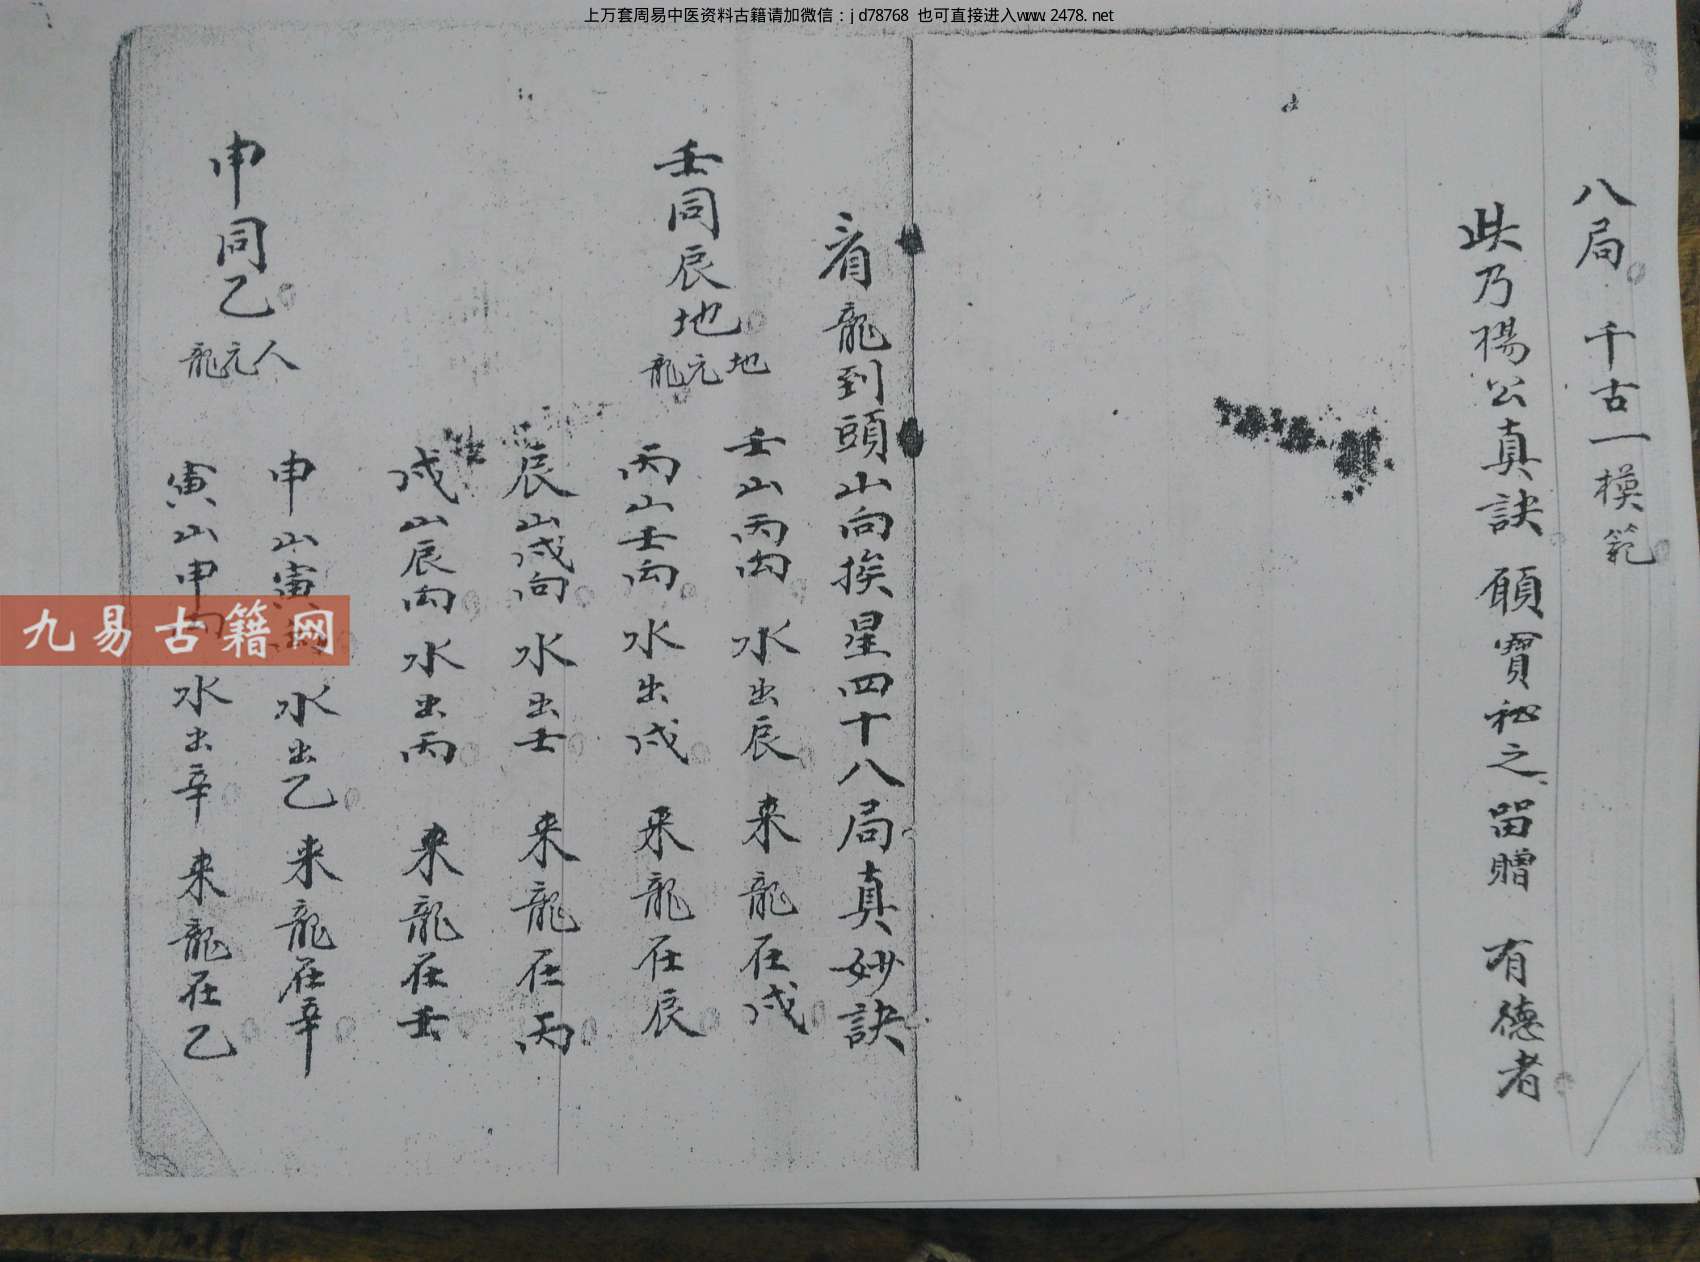 上万套周易中医资料古籍请加微信：jd78768 也可直接进入www.2478.net
八局 千古一模範
此乃楊公真訣 願寶祕之 留贈 有德者
看龍到頭山向挨星四十八局真妙訣
壬同辰地 地元龍
壬山丙向 水出辰 来龍在戌
丙山壬向 水出戌 来龍在辰
辰山戌向 水出壬 来龍在丙
戌山辰向 水出丙 来龍在壬
申同乙 人元龍
申山寅 水出乙 来龍在辛
寅山申向 水出辛 来龍在乙
九易古籍网